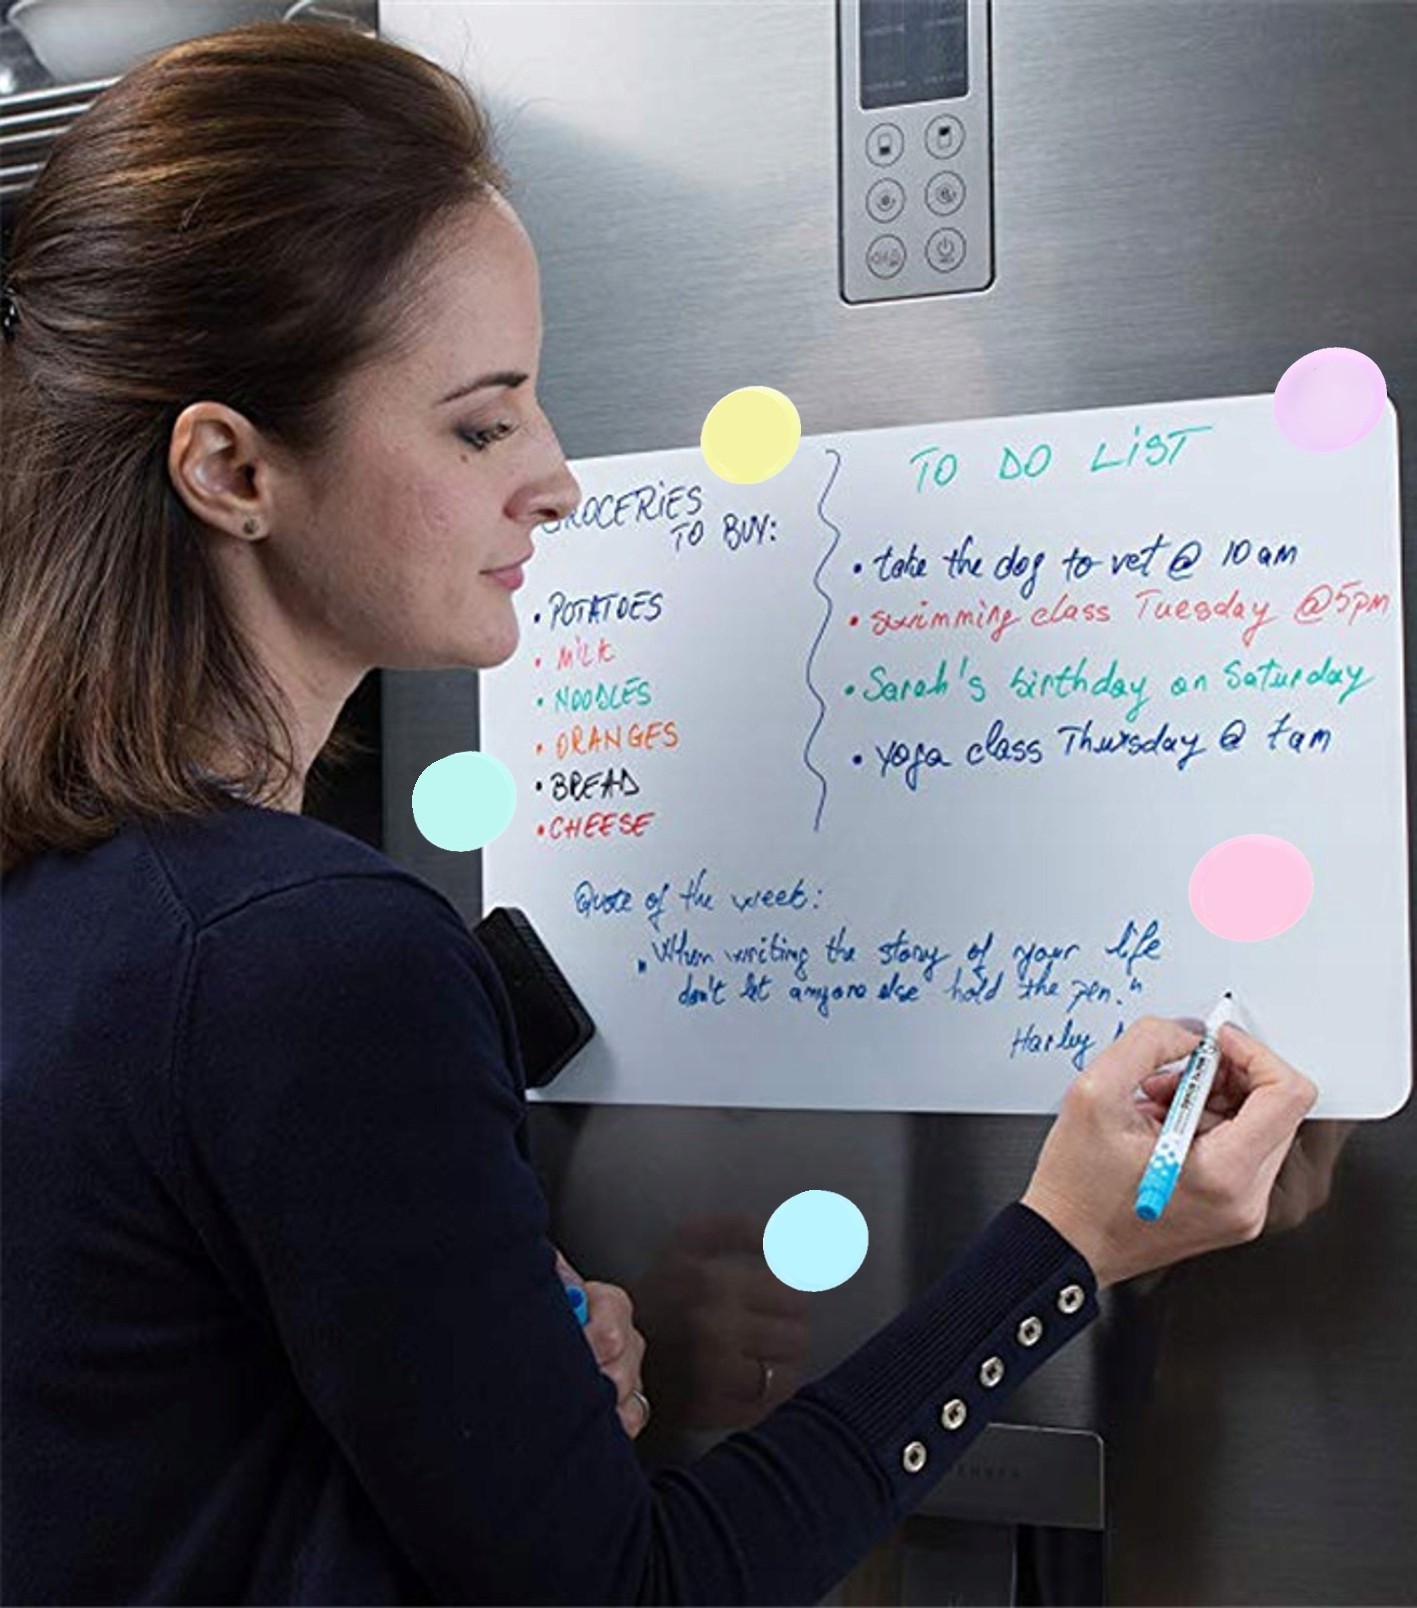 GROCERIES
TO BUY:
• POTATOES
• MILK
• NOODLES
• ORANGES
• BREAD
• CHEESE
TO DO LIST
• take the dog to vet @ 10 am
• swimming class Tuesday @5pm
• Sarah's birthday on Saturday
• yoga class Thursday @ 7am
Quote of the week:
"When writing the story of your life
don't let anyone else hold the pen."
Harley